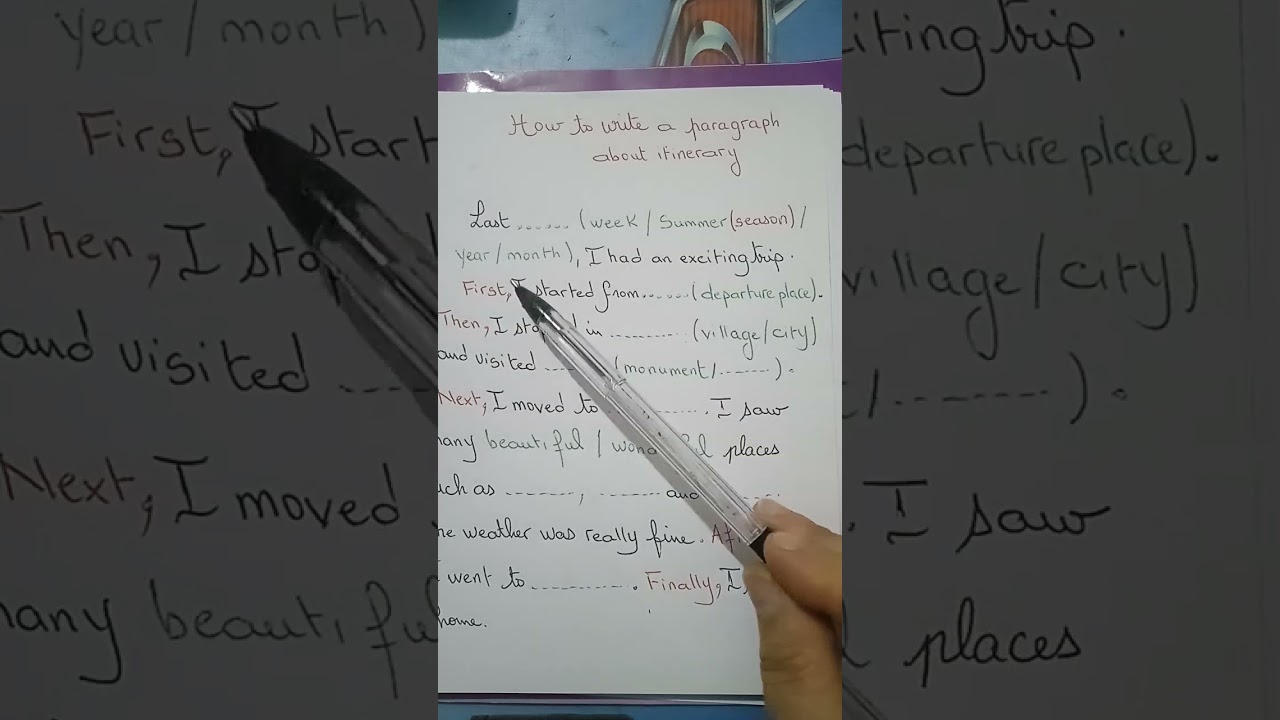 How to write a paragraph
about itinerary
Last ...... (week / Summer (season) /
year / month), I had an exciting trip.
First, I started from ...... (departure place).
Then, I in .......... (village / city)
and visited ........ (monument / .......).
Next, I moved to .......... . I saw
many beautiful / wonderful places
such as ........, ........ and ........
The weather was really fine.
I went to ............ . Finally, I
home.